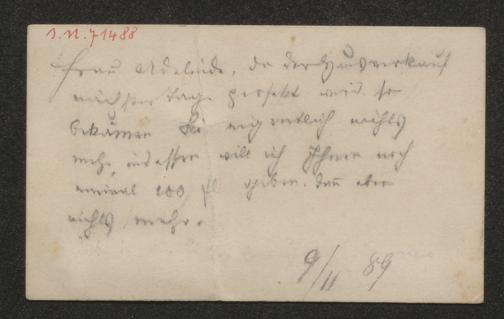 I.N. 71488
Frau Adelinde, da der Hausverkauf
nächster Tage perfekt wird, so
bekämen Sie eigentlich nichts
mehr, indessen will ich Ihnen noch
einmal 100 fl geben, dann aber
nichts mehr.
9/11 89